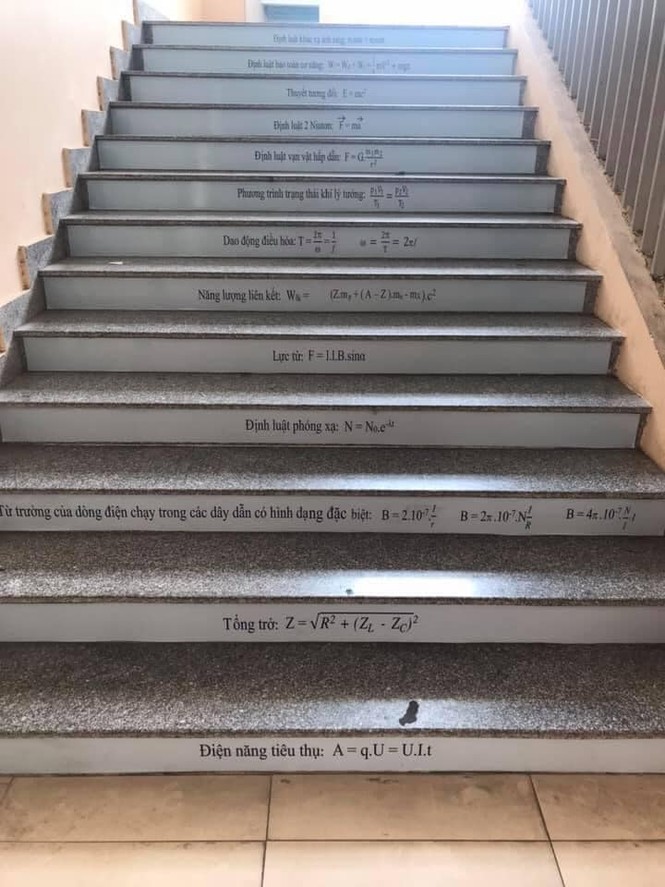 Định luật khúc xạ ánh sáng:
Định luật bảo toàn cơ năng: W = Wđ + Wt = ½ mV² + mgz
Thuyết tương đối: E = mc²
Định luật 2 Niuton: F⃗ = ma⃗
Định luật vạn vật hấp dẫn: F = G.m₁m₂/r²
Phương trình trạng thái khí lý tưởng: p₁V₁/T₁ = p₂V₂/T₂
Dao động điều hòa: T = 2π/ω = 1/f ω = 2π/T = 2πf
Năng lượng liên kết: Wlk = (Z.mp + (A – Z).mn – mX).c²
Lực từ: F = I.l.B.sinα
Định luật phóng xạ: N = N₀.e^-λt
Từ trường của dòng điện chạy trong các dây dẫn có hình dạng đặc biệt: B = 2.10⁻⁷.I/r B = 2π.10⁻⁷.N I/R B = 4π.10⁻⁷.N/l.I
Tổng trở: Z = √R² + (Z_L - Z_C)²
Điện năng tiêu thụ: A = q.U = U.I.t